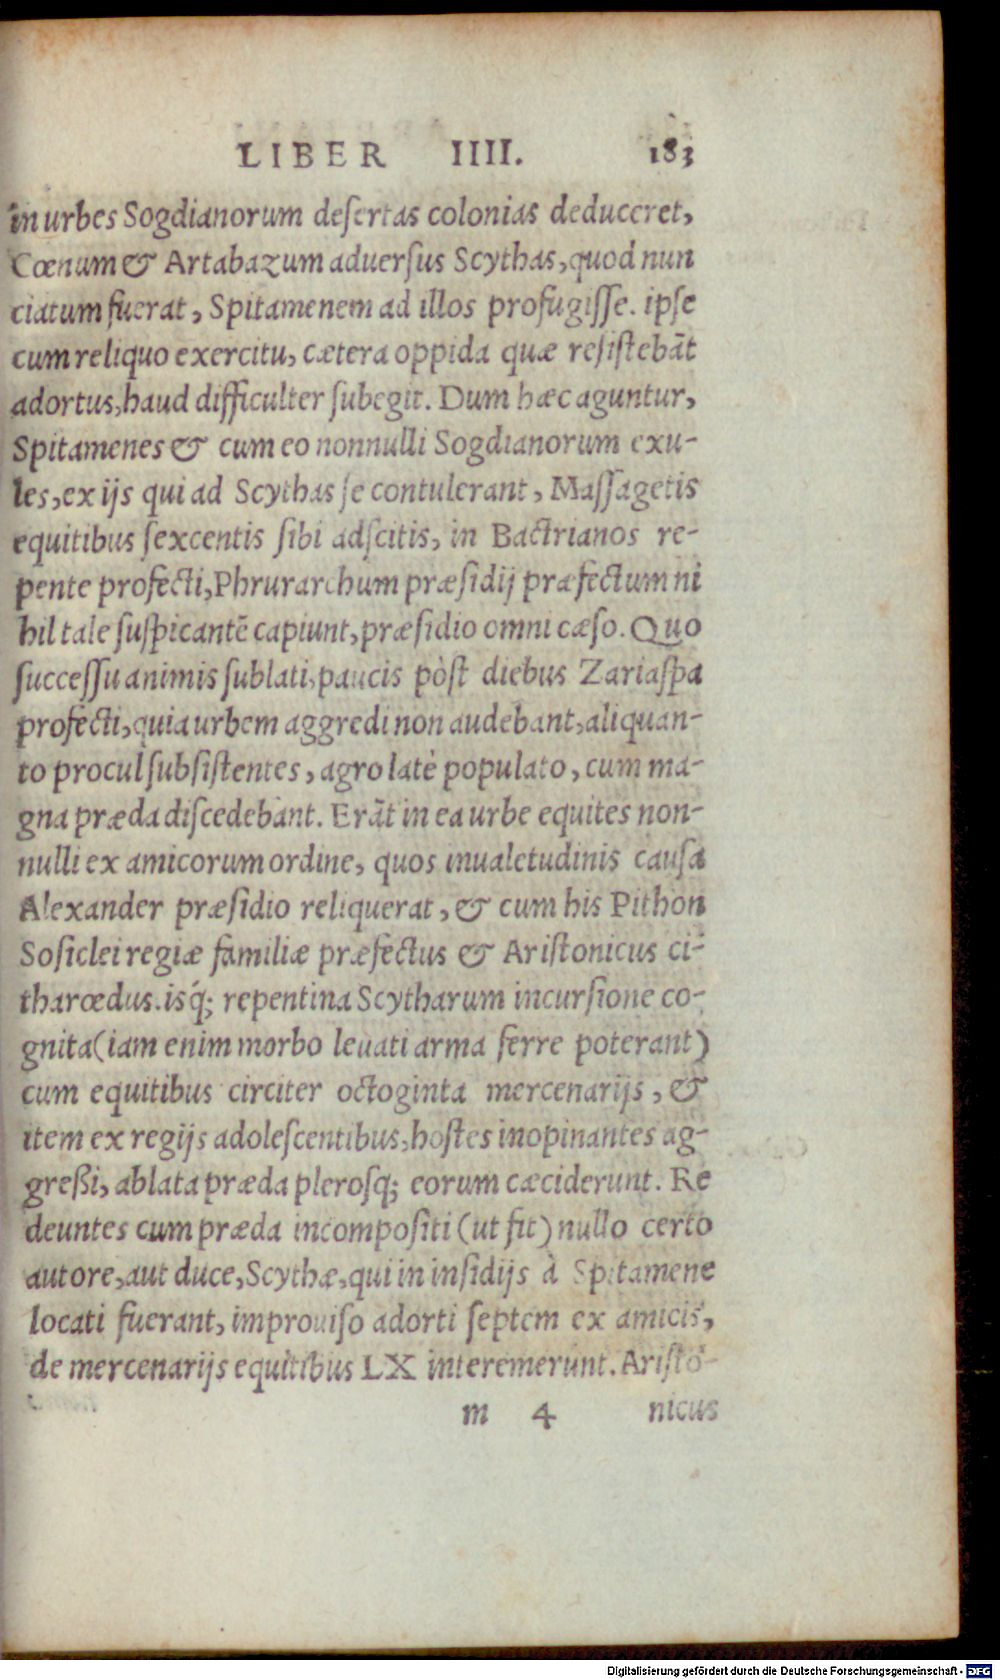 LIBER IIII. 183
in urbes Sogdianorum desertas colonias deduceret,
Cœnum & Artabazum aduersus Scythas, quod nun
ciatum fuerat, Spitamenem ad illos profugisse. ipse
cum reliquo exercitu, cætera oppida quæ resistebāt
adortus, haud difficulter subegit. Dum hæc aguntur,
Spitamenes & cum eo nonnulli Sogdianorum exu-
les, ex ijs qui ad Scythas se contulerant, Massagetis
equitibus sexcentis sibi adscitis, in Bactrianos re-
pente profecti, Phrurarchum præsidij præfectum ni
hil tale suspicantē capiunt, præsidio omni cæso. Quo
successu animis sublati, paucis pòst diebus Zariaspa
profecti, quia urbem aggredi non audebant, aliquan-
to procul subsistentes, agro latè populato, cum ma-
gna præda discedebant. Erāt in ea urbe equites non-
nulli ex amicorum ordine, quos inualetudinis causa
Alexander præsidio reliquerat, & cum his Pithon
Sosiclei regiæ familiæ præfectus & Aristonicus ci-
tharœdus. isq́; repentina Scytharum incursione co-
gnita (iam enim morbo leuati arma ferre poterant)
cum equitibus circiter octoginta mercenarijs, &
item ex regijs adolescentibus, hostes inopinantes ag-
greßi, ablata præda plerosq; eorum cæciderunt. Re
deuntes cum præda incompositi (ut fit) nullo certo
autore, aut duce, Scythæ, qui in insidijs à Spitamene
locati fuerant, improuiso adorti septem ex amicis,
de mercenarijs equitibus LX interemerunt. Aristo-
m 4 nicus
Digitalisierung gefördert durch die Deutsche Forschungsgemeinschaft - DFG